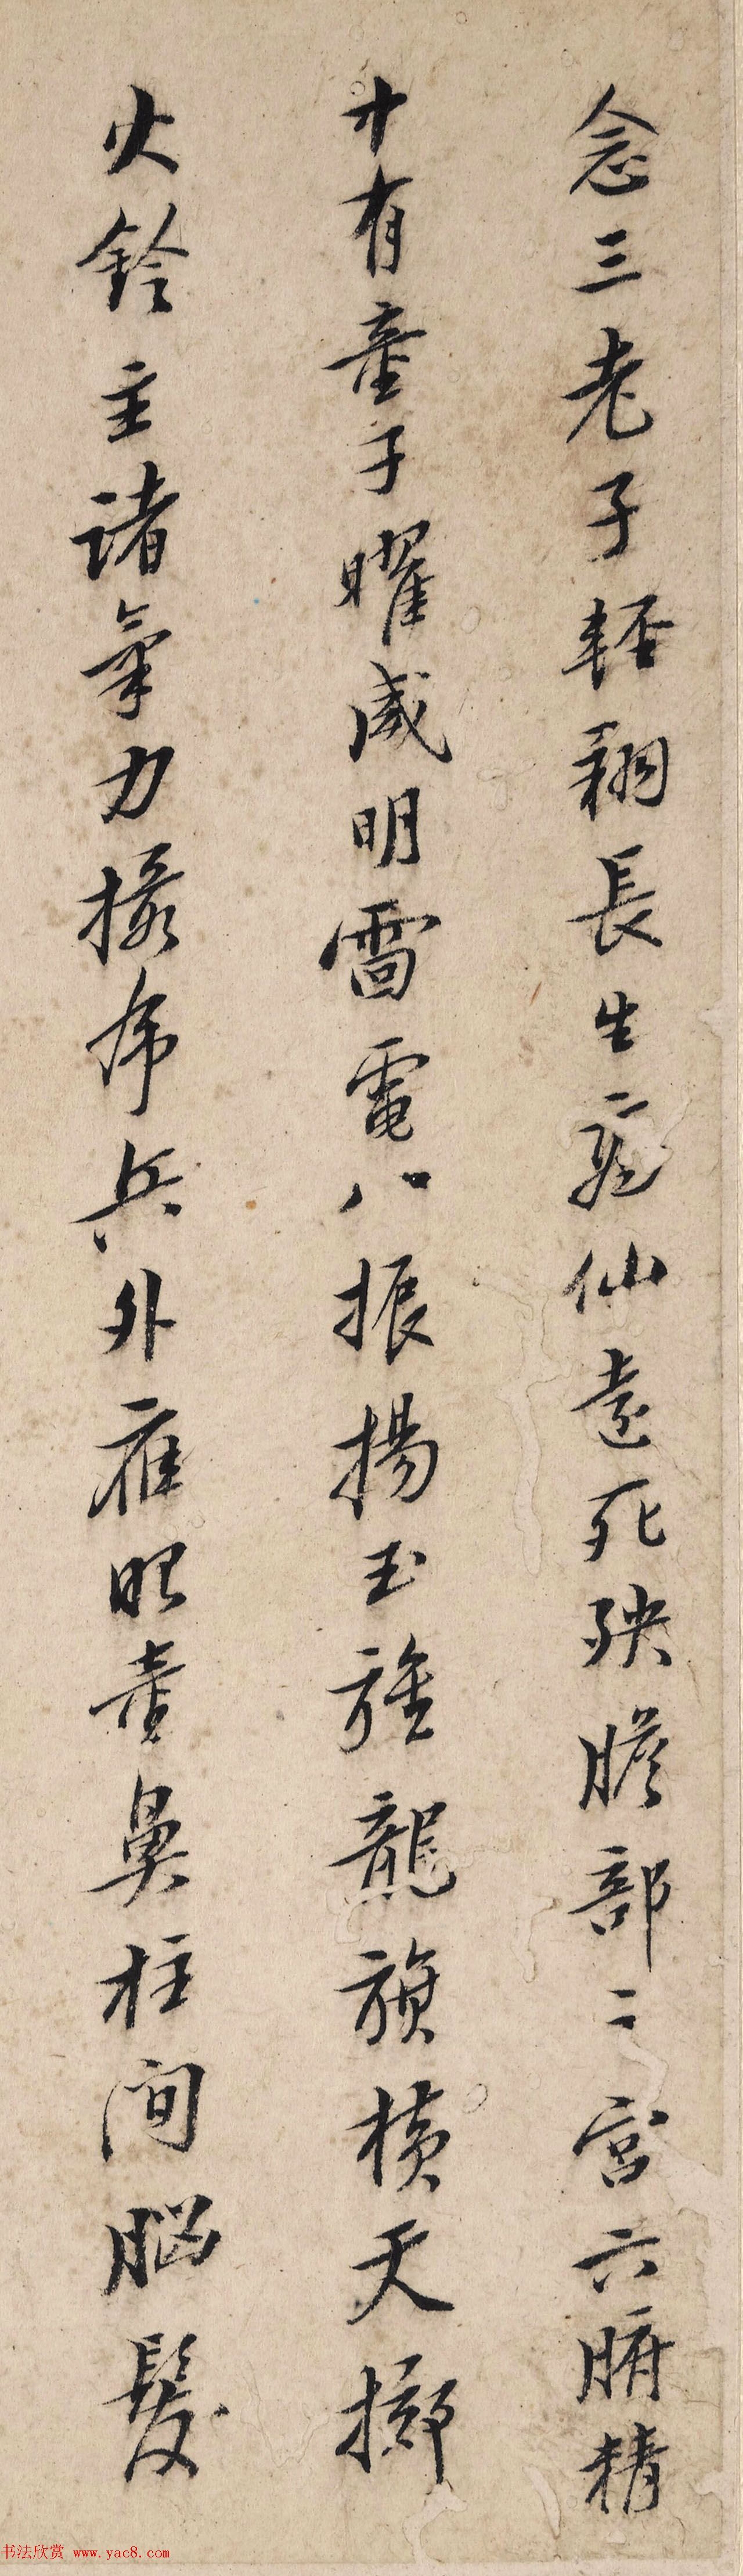 念三老子輕翔長生飛仙遠死殃膽部之宮六腑精
中有童子曜威明雷電八振揚玉旌龍旗横天擲
火鈴主諸氣力攝虎兵外應眼童鼻柱間腦髮
书法欣赏 www.yac8.com